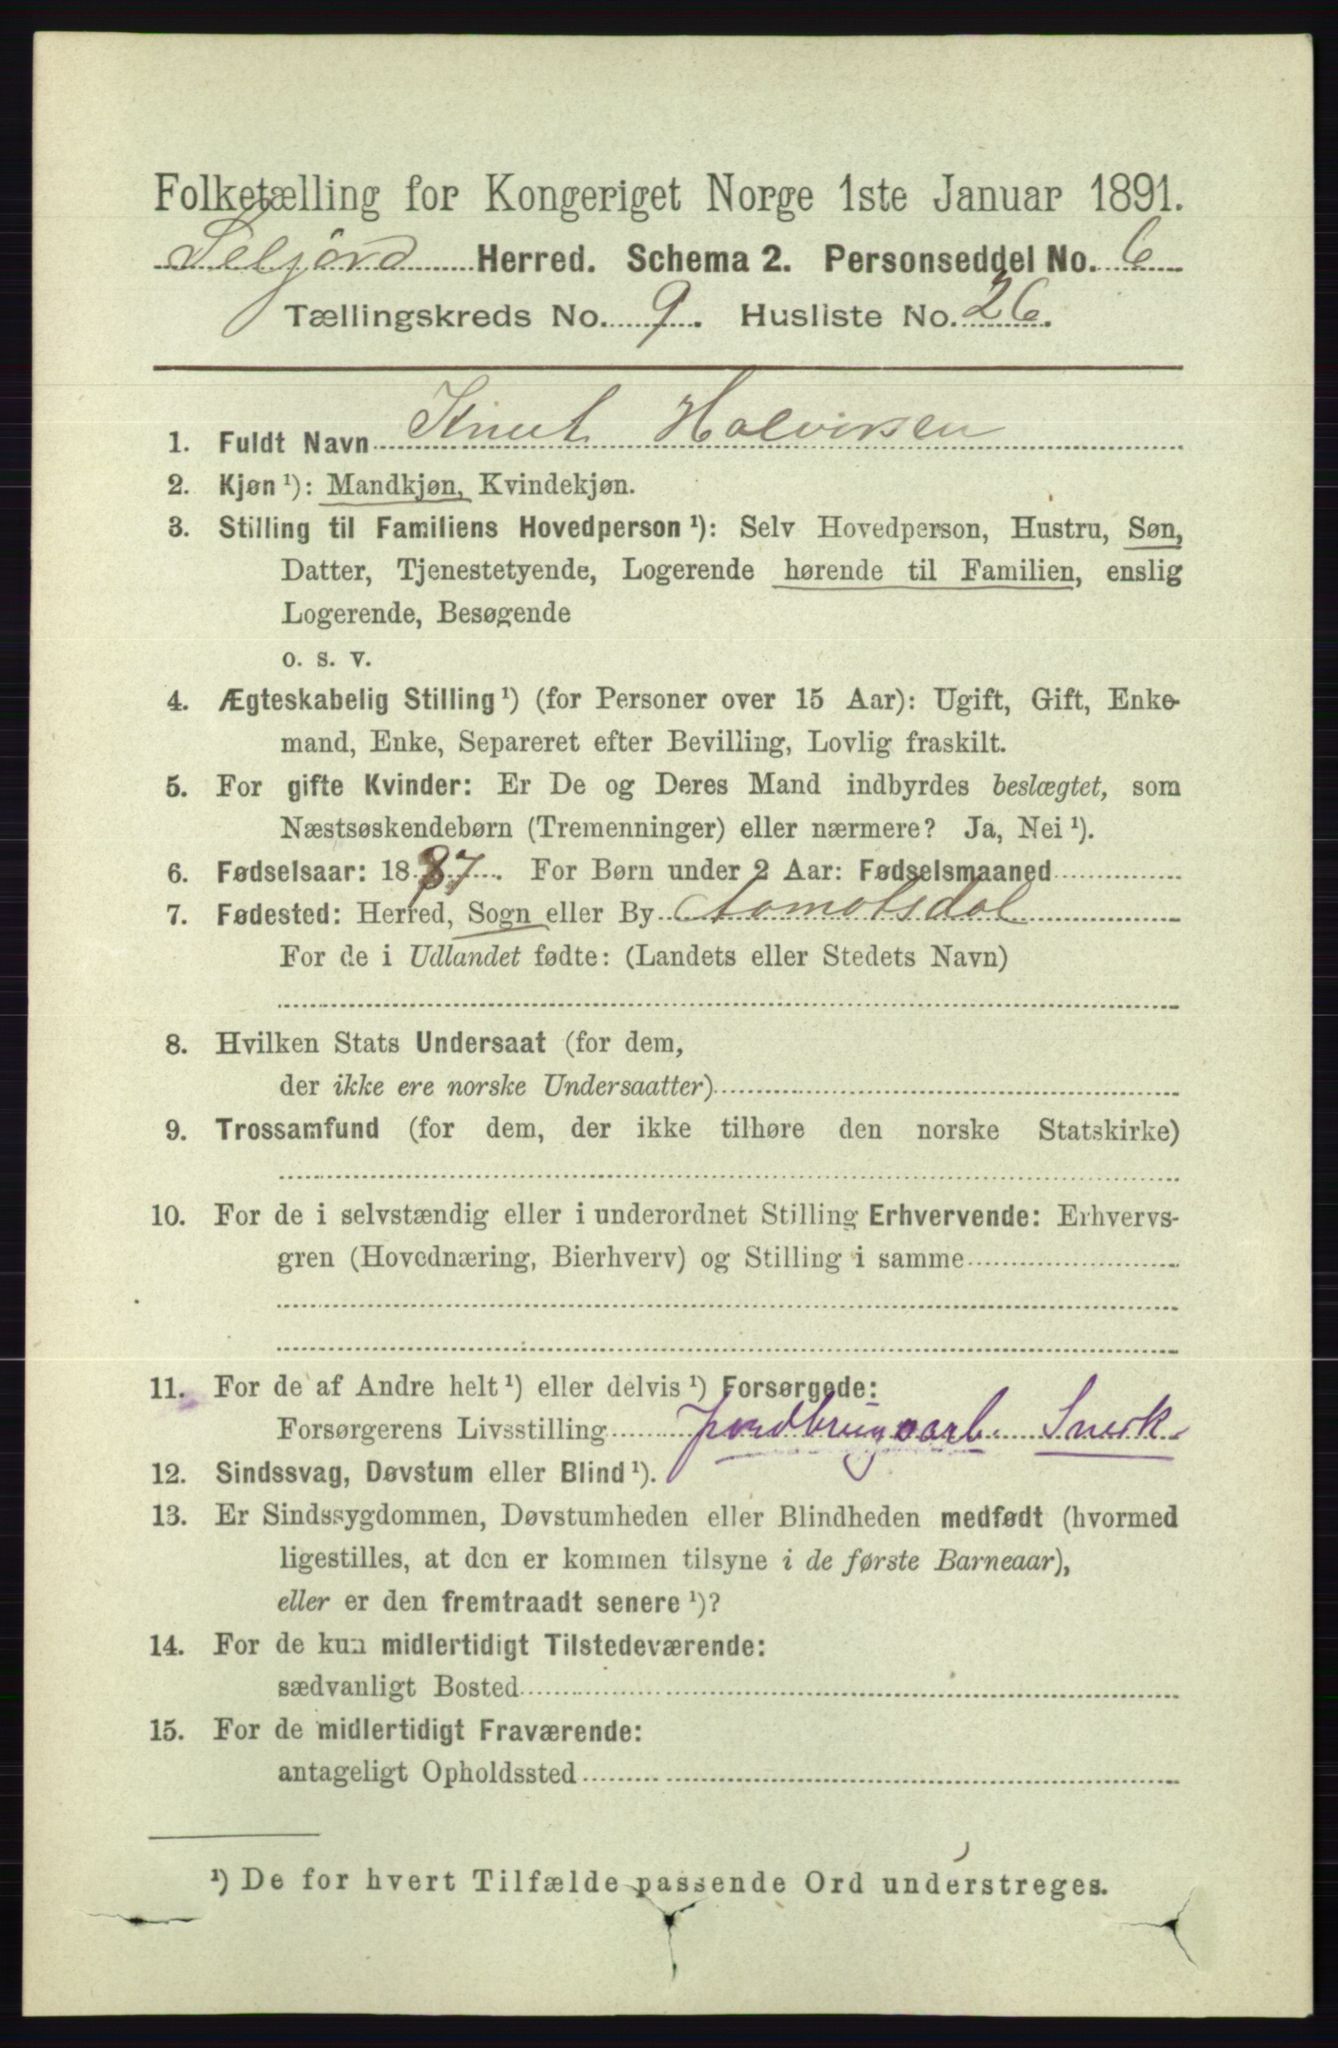 Folketælling for Kongeriget Norge 1ste Januar 1891.
Seljord Herred. Schema 2. Personseddel No. 6
Tællingskreds No. 9. Husliste No. 26.
1. Fuldt Navn Knut Halvorsen
2. Kjøn ¹): Mandkjøn, Kvindekjøn.
3. Stilling til Familiens Hovedperson ¹): Selv Hovedperson, Hustru, Søn,
Datter, Tjenestetyende, Logerende hørende til Familien, enslig
Logerende, Besøgende
o. s. v.
4. Ægteskabelig Stilling ¹) (for Personer over 15 Aar): Ugift, Gift, Enke-
mand, Enke, Separeret efter Bevilling, Lovlig fraskilt.
5. For gifte Kvinder: Er De og Deres Mand indbyrdes beslægtet, som
Næstsøskendebørn (Tremenninger) eller nærmere? Ja, Nei ¹).
6. Fødselsaar: 1887. For Børn under 2 Aar: Fødselsmaaned
7. Fødested: Herred, Sogn eller By Aamotsdal
For de i Udlandet fødte: (Landets eller Stedets Navn)
8. Hvilken Stats Undersaat (for dem,
der ikke ere norske Undersaatter)
9. Trossamfund (for dem, der ikke tilhøre den norske Statskirke)
10. For de i selvstændig eller i underordnet Stilling Erhvervende: Erhvervs-
gren (Hovednæring, Bierhverv) og Stilling i samme
11. For de af Andre helt ¹) eller delvis ¹) Forsørgede:
Forsørgerens Livsstilling Jordbrugsarb. Snerk
12. Sindssvag, Døvstum eller Blind ¹).
13. Er Sindssygdommen, Døvstumheden eller Blindheden medfødt (hvormed
ligestilles, at den er kommen tilsyne i de første Barneaar),
eller er den fremtraadt senere ¹)?
14. For de kun midlertidigt Tilstedeværende:
sædvanligt Bosted
15. For de midlertidigt Fraværende:
antageligt Opholdssted
¹) De for hvert Tilfælde passende Ord understreges.